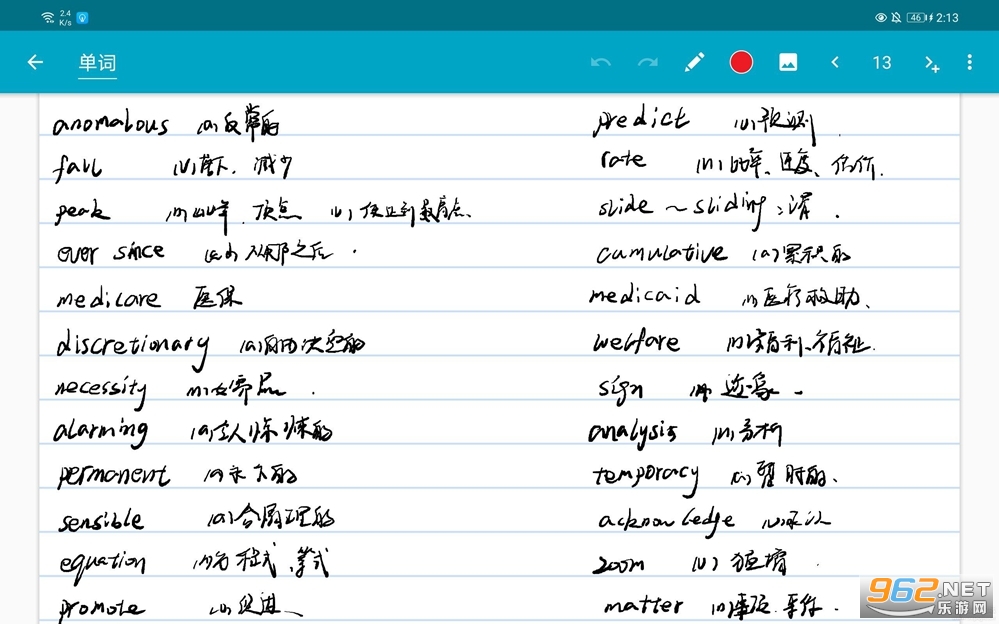 2.4 K/s 46 2:13
单词 13
anomalous (a)反常的 predict (v)预测.
fall (v)落下. 减少 rate (n)比率、速度、估价.
peak (n)山峰. 顶点 (v)使达到最高点、 slide ~ sliding : 滑.
ever since 从那之后. cumulative (a)累积的
medicare 医保 medicaid (n)医疗救助、
discretionary (a)自由决定的 welfare (n)福利、福祉.
necessity (n)必需品. sign (n)迹象.
alarming (a)令人惊悚的 analysis (n)分析
permanent (a)永久的 temporacy (a)暂时的.
sensible (a)合理的 acknowledge (v)承认
equation (n)方程式、等式 zoom (v)猛增.
promote (v)促进 matter (n)事项. 事件.
962.NET
乐游网